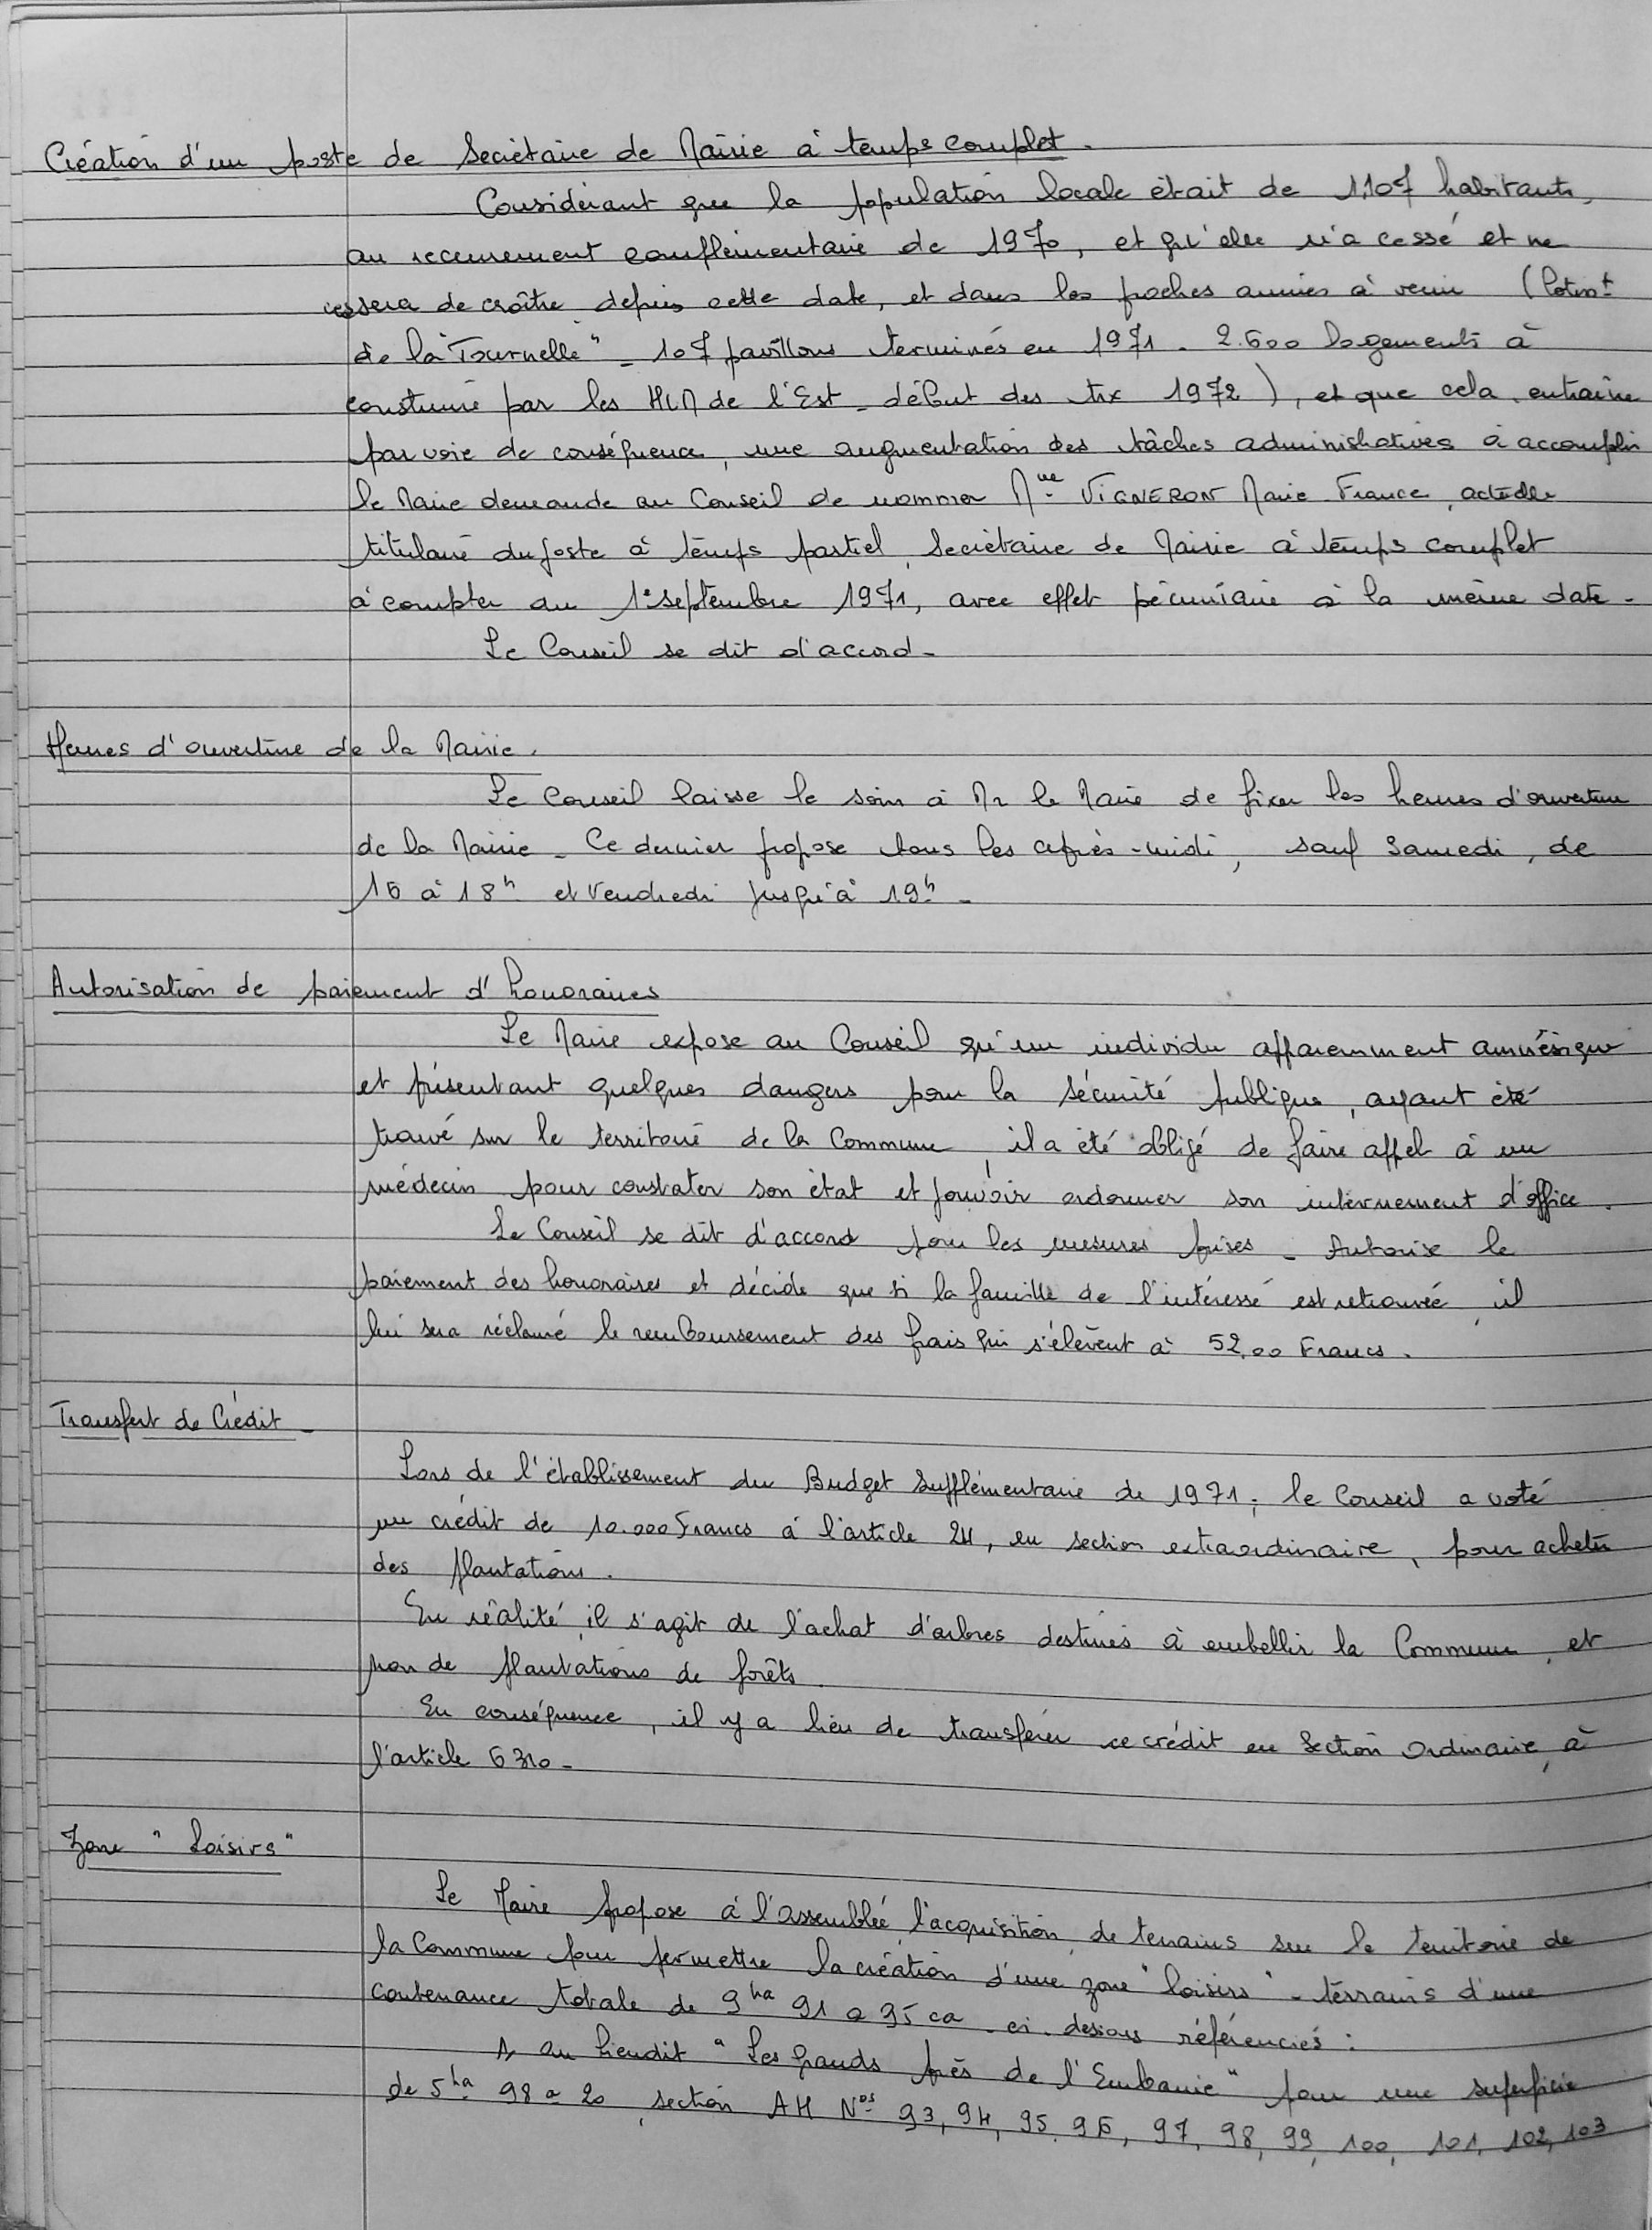 Création d'un poste de Secrétaire de Mairie à temps complet.
Considérant que la population locale était de 1.107 habitants,
au recensement complémentaire de 1970, et qu'elle n'a cessé et ne
cessera de croître depuis cette date, et dans les proches années à venir (lotismt
de la "Tournelle" - 107 pavillons terminés en 1971 - 2.600 logements à
construire par les HLM de l'Est - début des trx 1972), et que cela entraîne
par voie de conséquence, une augmentation des tâches administratives à accomplir
le Maire demande au Conseil de nommer Mme VIGNERON Marie-France, actuelle
titulaire du poste à temps partiel, Secrétaire de Mairie à temps complet
à compter du 1er septembre 1971, avec effet pécuniaire à la même date -
Le Conseil se dit d'accord -
Heures d'ouverture de la Mairie.
Le Conseil laisse le soin à Mr le Maire de fixer les heures d'ouverture
de la Mairie - Ce dernier propose tous les après-midi, sauf Samedi, de
16 à 18h et Vendredi jusqu'à 19h -
Autorisation de paiement d'honoraires
Le Maire expose au Conseil qu'un individu apparemment amnésique
et présentant quelques dangers pour la sécurité publique, ayant été
trouvé sur le territoire de la Commune, il a été obligé de faire appel à un
médecin pour constater son état et pouvoir ordonner son internement d'office.
Le Conseil se dit d'accord pour les mesures prises - Autorise le
paiement des honoraires et décide que si la famille de l'intéressé est retrouvée, il
lui sera réclamé le remboursement des frais qui s'élèvent à 52,00 Francs.
Transfert de Crédit -
Lors de l'établissement du Budget Supplémentaire de 1971, le Conseil a voté
un crédit de 10.000 Francs à l'article 24, en section extraordinaire, pour acheter
des plantations.
En réalité, il s'agit de l'achat d'arbres destinés à embellir la Commune, et
non de plantations de forêts.
En conséquence, il y a lieu de transférer ce crédit en Section Ordinaire, à
l'article 6310 -
Zone "Loisirs"
Le Maire propose à l'assemblée, l'acquisition, de terrains sur le territoire de
la Commune pour permettre la création d'une zone "loisirs" - terrains d'une
contenance totale de 9ha 91 a 95 ca - ci-dessous référenciés :
1- au lieudit "Les grands prés de l'Embanie" pour une superficie
de 5ha 98 a 20, section AH Nos 93, 94, 95, 96, 97, 98, 99, 100, 101, 102, 103